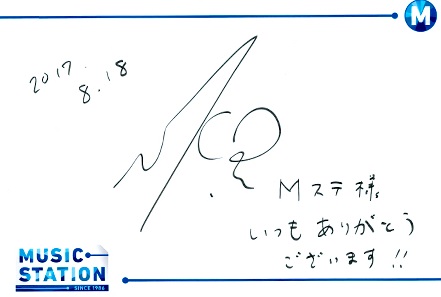 M
2017.
8.18
Mステ様。
いつもありがとう
ございます!!
MUSIC
STATION
SINCE 1986